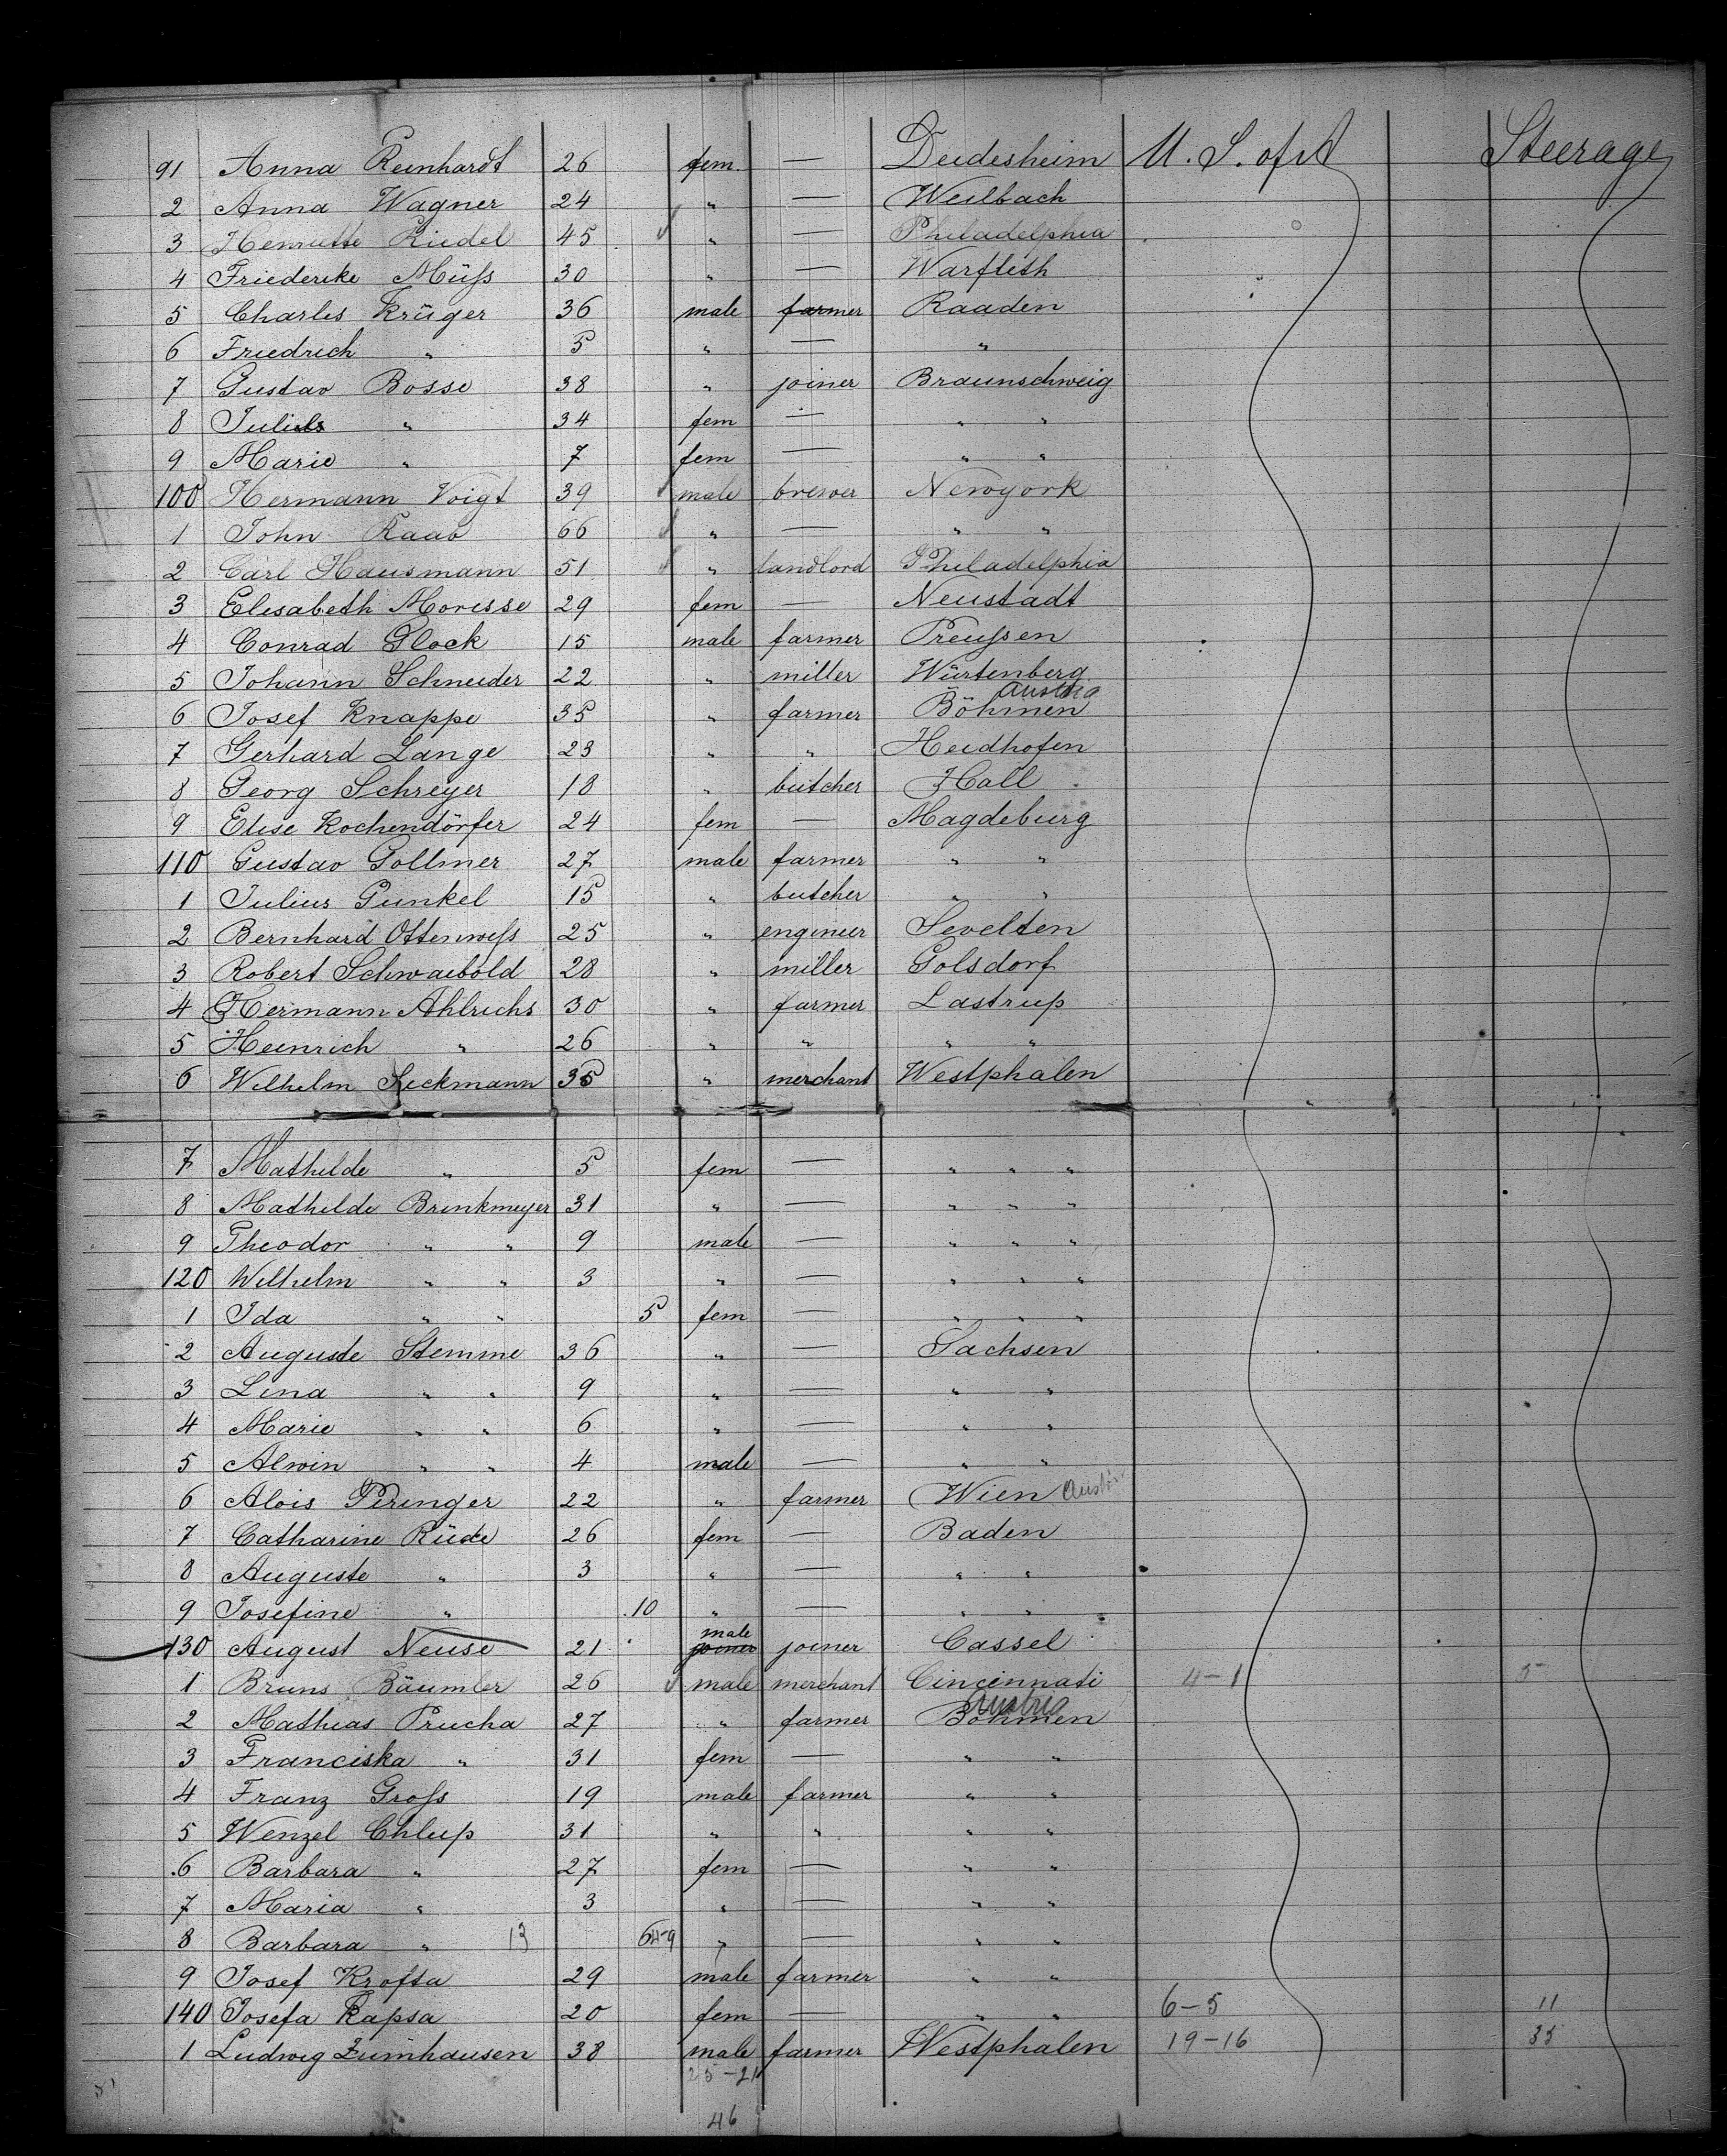 91 Anna Reinhardt 26 fem. — Deidesheim U. S. of A Steerage
2 Anna Wagner 24 " — Weilbach
3 Henriette Riedel 45 " — Philadelphia
4 Friederike Müſs 30 " — Warfleth
5 Charles Krüger 36 male farmer Raaden
6 Friedrich " 5 " — "
7 Gustav Bosse 38 " joiner Braunschweig
8 " 34 fem — " "
9 Marie " 7 fem — " "
100 Hermann Voigt 39 male brewer Newyork
1 John Raab 66 " — " "
2 Carl Hausmann 51 " landlord Philadelphia
3 Elisabeth Morisse 29 fem — Neustadt
4 Conrad Glock 15 male farmer Preuſsen
5 Johann Schneider 22 " miller Würtenberg
6 Josef Knappe 35 " farmer Böhmen Austria
7 Gerhard Lange 23 " " Heidhofen
8 Georg Schreyer 18 " butcher Hall
9 Elise Kochendörfer 24 fem — Magdeburg
110 Gustav Gollmer 27 male farmer " "
1 Julius Gunkel 15 " butcher " "
2 Bernhard Ottenweſs 25 " engineer Sevelten
3 Robert Schwaibold 28 " miller Golsdorf
4 Hermann Ahlrichs 30 " farmer Lastrup
5 Heinrich " 26 " " " "
6 Wilhelm Sieckmann 35 " merchant Westphalen
7 Mathilde " 5 fem — " " "
8 Mathilde Brinkmeyer 31 " — " " "
9 Theodor " " 9 male — " " "
120 Wilhelm " " 3 " — " " "
1 Ida " " 5 fem — " " "
2 Auguste Stemme 36 " — Sachsen
3 Lina " " 9 " — " "
4 Marie " " 6 " — " "
5 Alwin " " 4 male — " "
6 Alois Peringer 22 " farmer Wien
7 Catharine Rüde 26 fem — Baden
8 Auguste " 3 " — " "
9 Josefine " 10 " — " "
130 August Neuse 21 male joiner joiner Cassel
1 Bruns Bäumler 26 male merchant Cincinnati 4-1 5
2 Mathias Prucha 27 " farmer Böhmen Austria
3 Franciska " 31 fem — " "
4 Franz Groſs 19 male farmer " "
5 Wenzel Chlup 31 " " " "
6 Barbara " 27 fem — " "
7 Maria " 3 " — " "
8 Barbara " 13 " — " "
9 Josef Krofta 29 male farmer " "
140 Josefa Kapsa 20 fem — " " 6-5 11
1 Ludwig Zumhausen 38 male farmer Westphalen 19-16 35
25-21
46